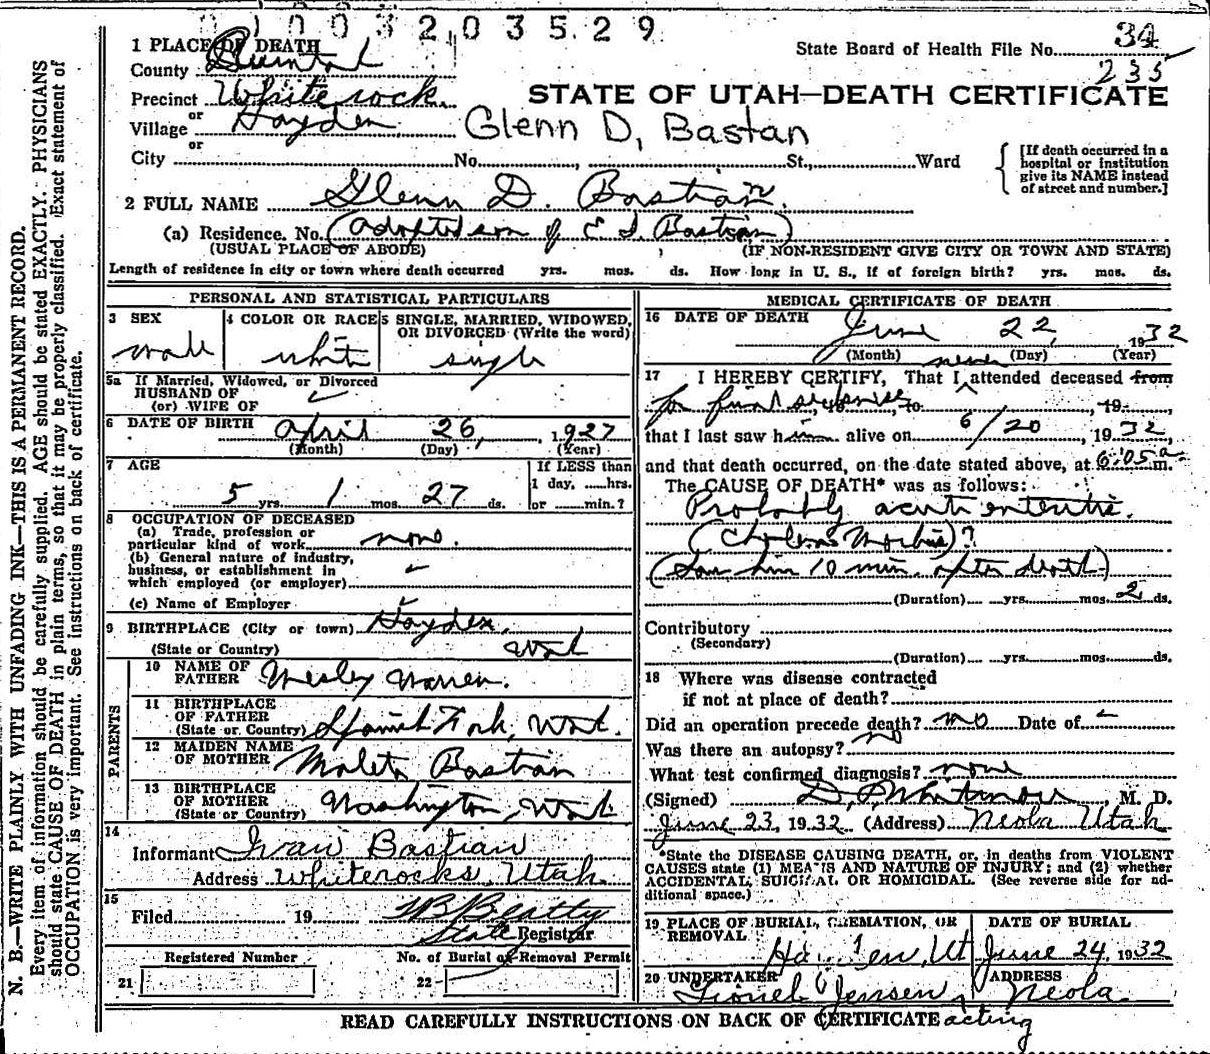 0100 3203529
1 PLACE OF DEATH
State Board of Health File No. 34
235
County
Precinct Whiterock
STATE OF UTAH—DEATH CERTIFICATE
or
Village Hayden
Glenn D, Bastan
or
City No. , St., Ward
[If death occurred in a hospital or institution give its NAME instead of street and number.]
2 FULL NAME Glenn D. Bastian.
(a) Residence. No. (Adopted son of E I. Bastian)
(USUAL PLACE OF ABODE) (IF NON-RESIDENT GIVE CITY OR TOWN AND STATE)
Length of residence in city or town where death occurred yrs. mos. ds. How long in U. S., if of foreign birth? yrs. mos. ds.
PERSONAL AND STATISTICAL PARTICULARS
3 SEX
4 COLOR OR RACE
5 SINGLE, MARRIED, WIDOWED, OR DIVORCED (Write the word)
male white single
5a If Married, Widowed, or Divorced
HUSBAND OF
(or) WIFE OF
6 DATE OF BIRTH April 26, 1927
(Month) (Day) (Year)
7 AGE
If LESS than
1 day, hrs.
or min.?
5 yrs. 1 mos. 27 ds.
8 OCCUPATION OF DECEASED
(a) Trade, profession or
particular kind of work none.
(b) General nature of industry,
business, or establishment in
which employed (or employer)
(c) Name of Employer
9 BIRTHPLACE (City or town) Hayden,
(State or Country) Utah
PARENTS
10 NAME OF FATHER Wesley Warren.
11 BIRTHPLACE OF FATHER (State or Country) Spanish Fork, Utah.
12 MAIDEN NAME OF MOTHER Maleta Bastian
13 BIRTHPLACE OF MOTHER (State or Country) Washington, Utah
14
Informant Ivan Bastian
Address Whiterocks, Utah
15
Filed 19 Beatty
State Registrar
Registered Number No. of Burial or Removal Permit
21 22
MEDICAL CERTIFICATE OF DEATH
16 DATE OF DEATH June 22, 1932
(Month) (Day) (Year)
never
17 I HEREBY CERTIFY, That I attended deceased from
for to , 19
that I last saw him alive on 6/20, 1932,
and that death occurred, on the date stated above, at 6:05 a m.
The CAUSE OF DEATH* was as follows:
Probably acute enteritis.
(Cholera Morbus)?
(Saw him 10 min. after death)
(Duration) yrs. mos. 2 ds.
Contributory
(Secondary)
(Duration) yrs. mos. ds.
18 Where was disease contracted
if not at place of death?
Did an operation precede death? no Date of
Was there an autopsy? no
What test confirmed diagnosis? none
(Signed) D. P. Whitmore, M. D.
June 23, 1932 (Address) Neola Utah
*State the DISEASE CAUSING DEATH, or, in deaths from VIOLENT
CAUSES state (1) MEANS AND NATURE OF INJURY; and (2) whether
ACCIDENTAL, SUICIDAL OR HOMICIDAL. (See reverse side for ad-
ditional space.)
19 PLACE OF BURIAL, CREMATION, OR REMOVAL
DATE OF BURIAL
Hayden, Ut June 24, 1932
20 UNDERTAKER
ADDRESS
Lionel Jensen, Neola
acting
READ CAREFULLY INSTRUCTIONS ON BACK OF CERTIFICATE
N. B.—WRITE PLAINLY WITH UNFADING INK—THIS IS A PERMANENT RECORD.
Every item of information should be carefully supplied. AGE should be stated EXACTLY. PHYSICIANS
should state CAUSE OF DEATH in plain terms, so that it may be properly classified. Exact statement of
OCCUPATION is very important. See instructions on back of certificate.